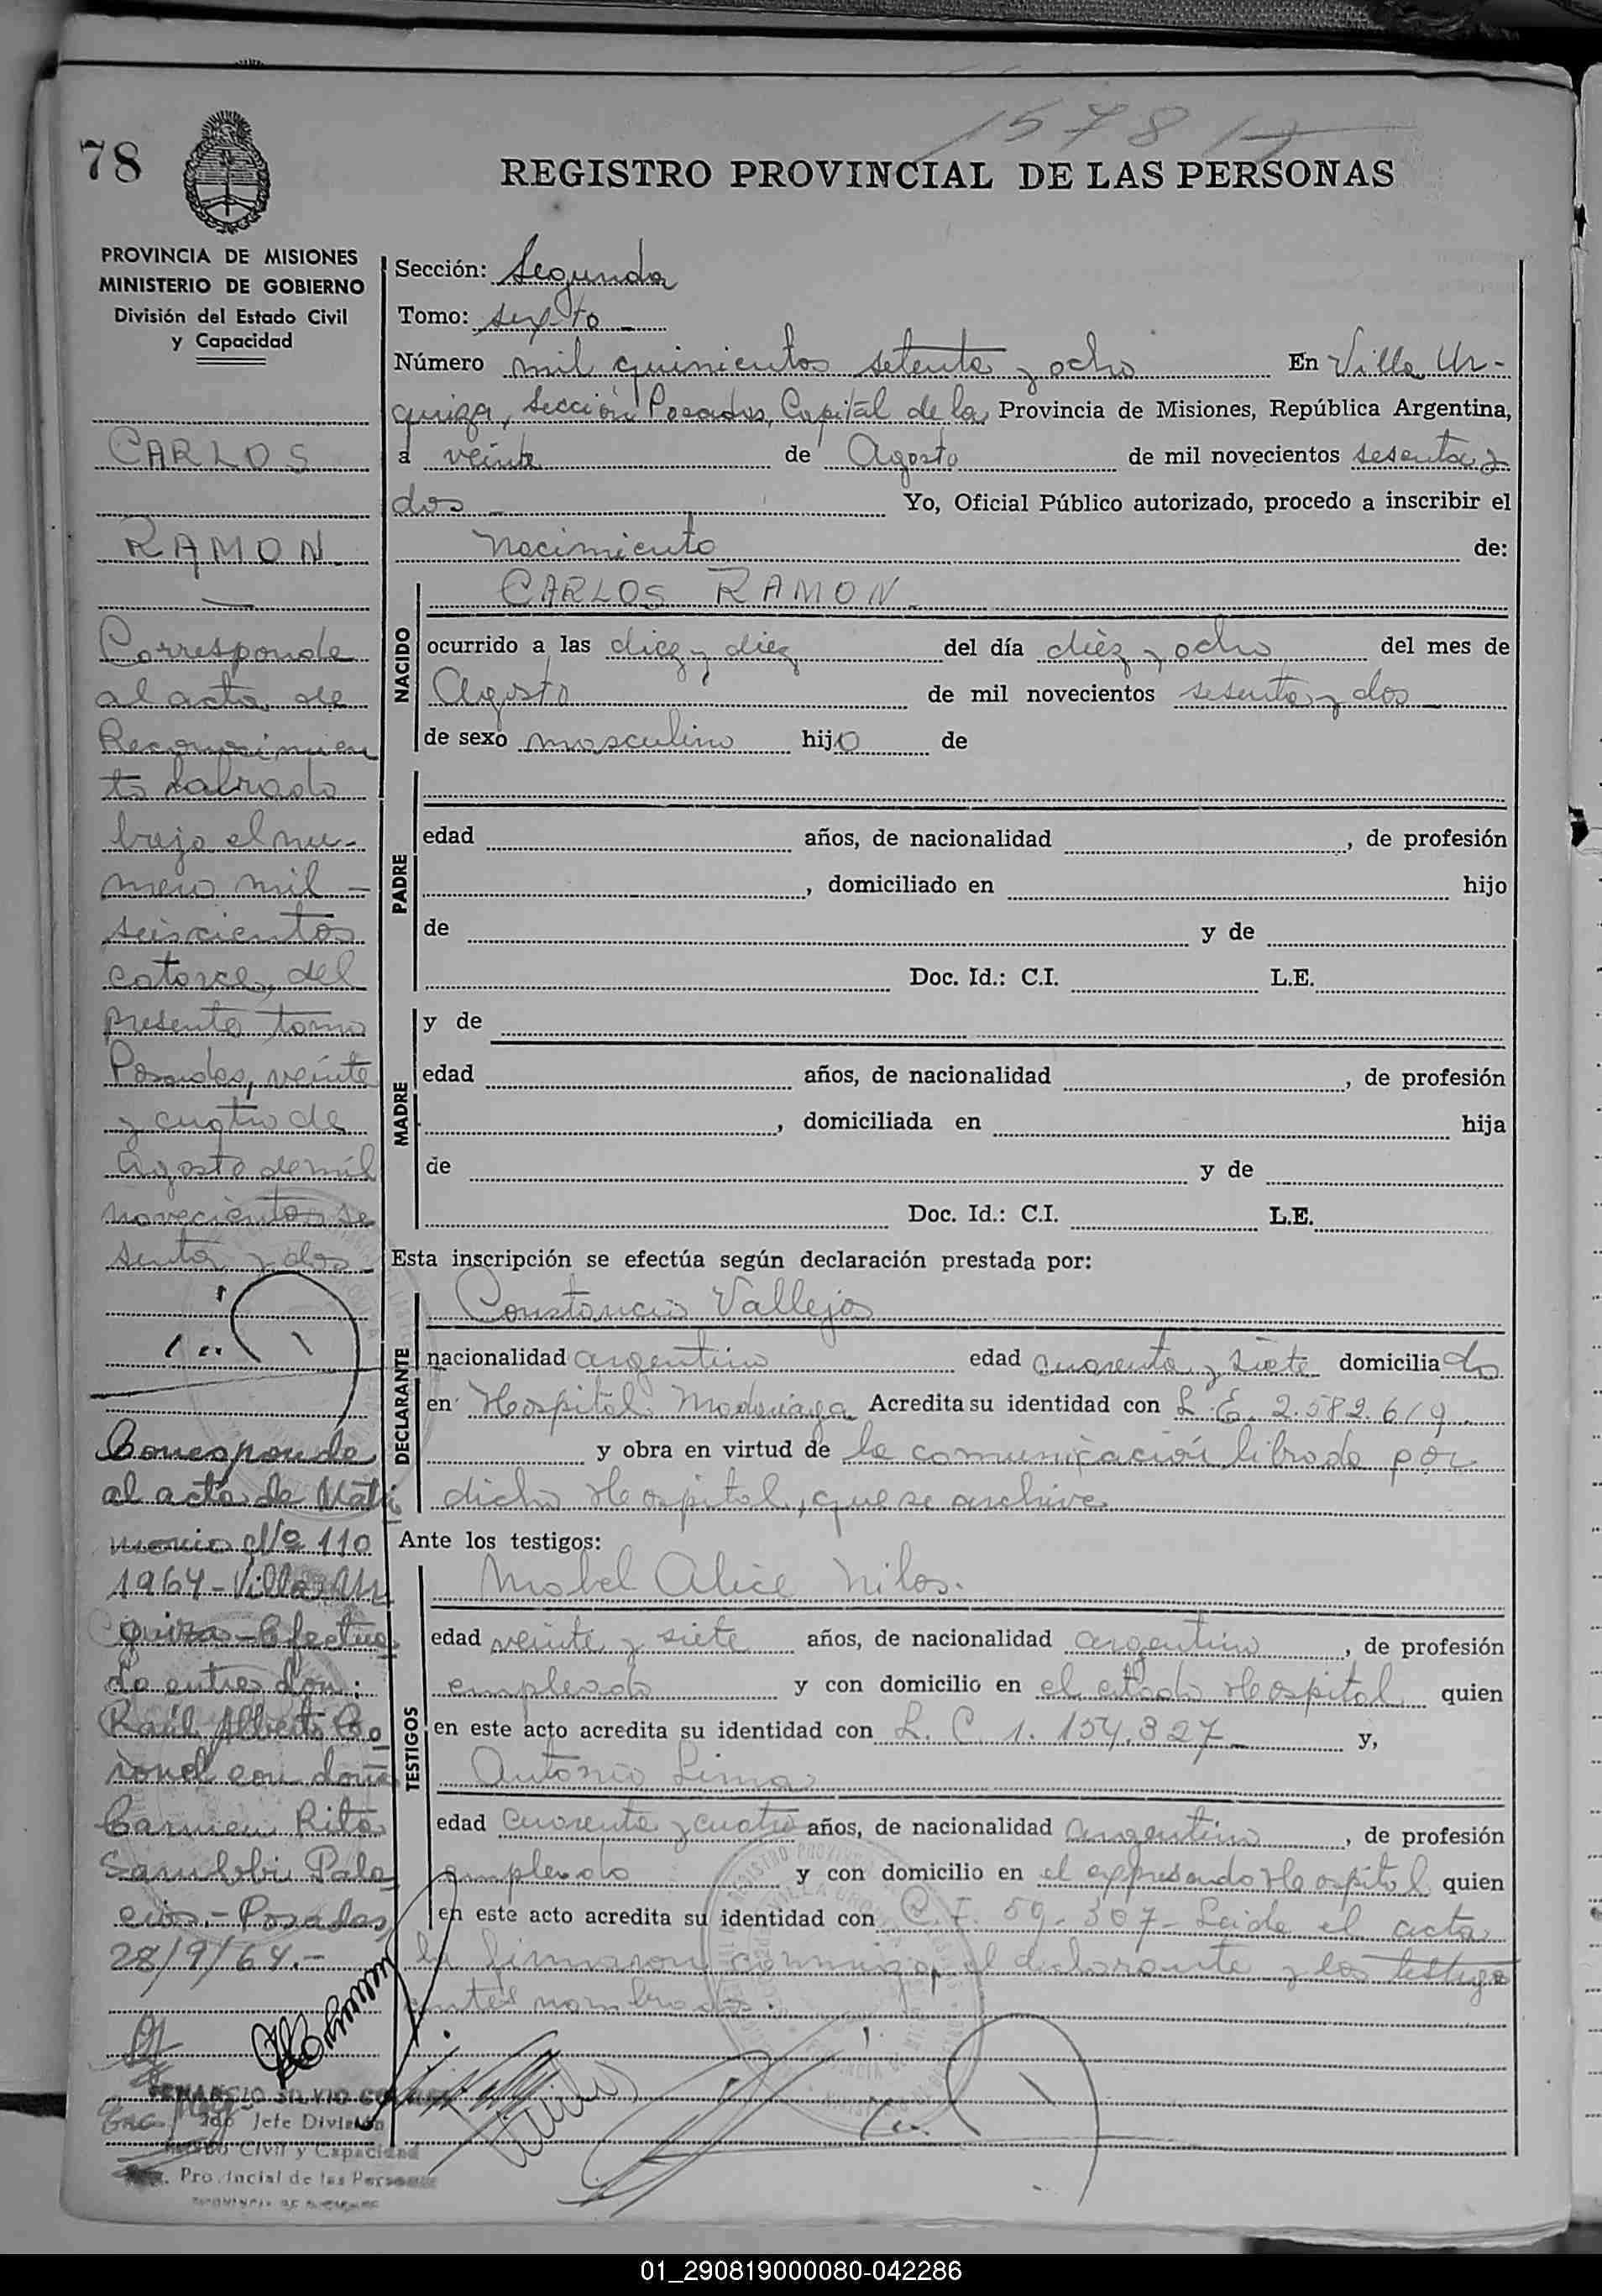 1578
78
REGISTRO PROVINCIAL DE LAS PERSONAS
PROVINCIA DE MISIONES
MINISTERIO DE GOBIERNO
División del Estado Civil
y Capacidad
CARLOS
RAMON
Corresponde
al acta de
Reconocimien
to labrado
bajo el nu-
mero mil -
seiscientos
catorce, del
presente tomo
Posadas, veinte
y cuatro de
Agosto de mil
novecientos se
senta y dos
Corresponde
al acta de Matri
monio Nº 110
1964 - Villa Ur
quiza - Efectua
do entre don:
Raúl Alberto
con doña
Carmen Rita
Pala
cios. - Posadas,
28/9/64. -
SILVIO
Jefe División
Civil y Capacidad
Provincial de las Personas
PROVINCIA DE MISIONES
Sección: Segunda
Tomo: sexto
Número mil quinientos setenta y ocho En Villa Ur-
quiza, Sección Posadas, Capital de la Provincia de Misiones, República Argentina,
a veinte de Agosto de mil novecientos sesenta y
dos - Yo, Oficial Público autorizado, procedo a inscribir el
Nacimiento de:
NACIDO
CARLOS RAMON -
ocurrido a las diez y diez del día diez y ocho del mes de
Agosto de mil novecientos sesenta y dos
de sexo masculino hijo de
PADRE
edad años, de nacionalidad , de profesión
, domiciliado en hijo
de y de
Doc. Id.: C.I. L.E.
MADRE
y de
edad años, de nacionalidad , de profesión
, domiciliada en hija
de y de
Doc. Id.: C.I. L.E.
Esta inscripción se efectúa según declaración prestada por:
DECLARANTE
Constancio Vallejos
nacionalidad argentino edad cuarenta y siete domiciliado
en Hospital Madariaga Acredita su identidad con L.E. 2.582.619.
y obra en virtud de la comunicación librada por
dicho Hospital, que se archiva
Ante los testigos:
TESTIGOS
Mabel Alice Nilos.
edad veinte y siete años, de nacionalidad argentina, de profesión
empleada y con domicilio en el citado Hospital quien
en este acto acredita su identidad con L. C 1.154.327 - y,
Antonio Lima
edad cuarenta y cuatro años, de nacionalidad argentino, de profesión
empleado y con domicilio en el expresado Hospital quien
en este acto acredita su identidad con C.I. 59.307 - Leida el acta
la firmaron conmigo, el declarante y los testigos
antes nombrados.
01_290819000080-042286